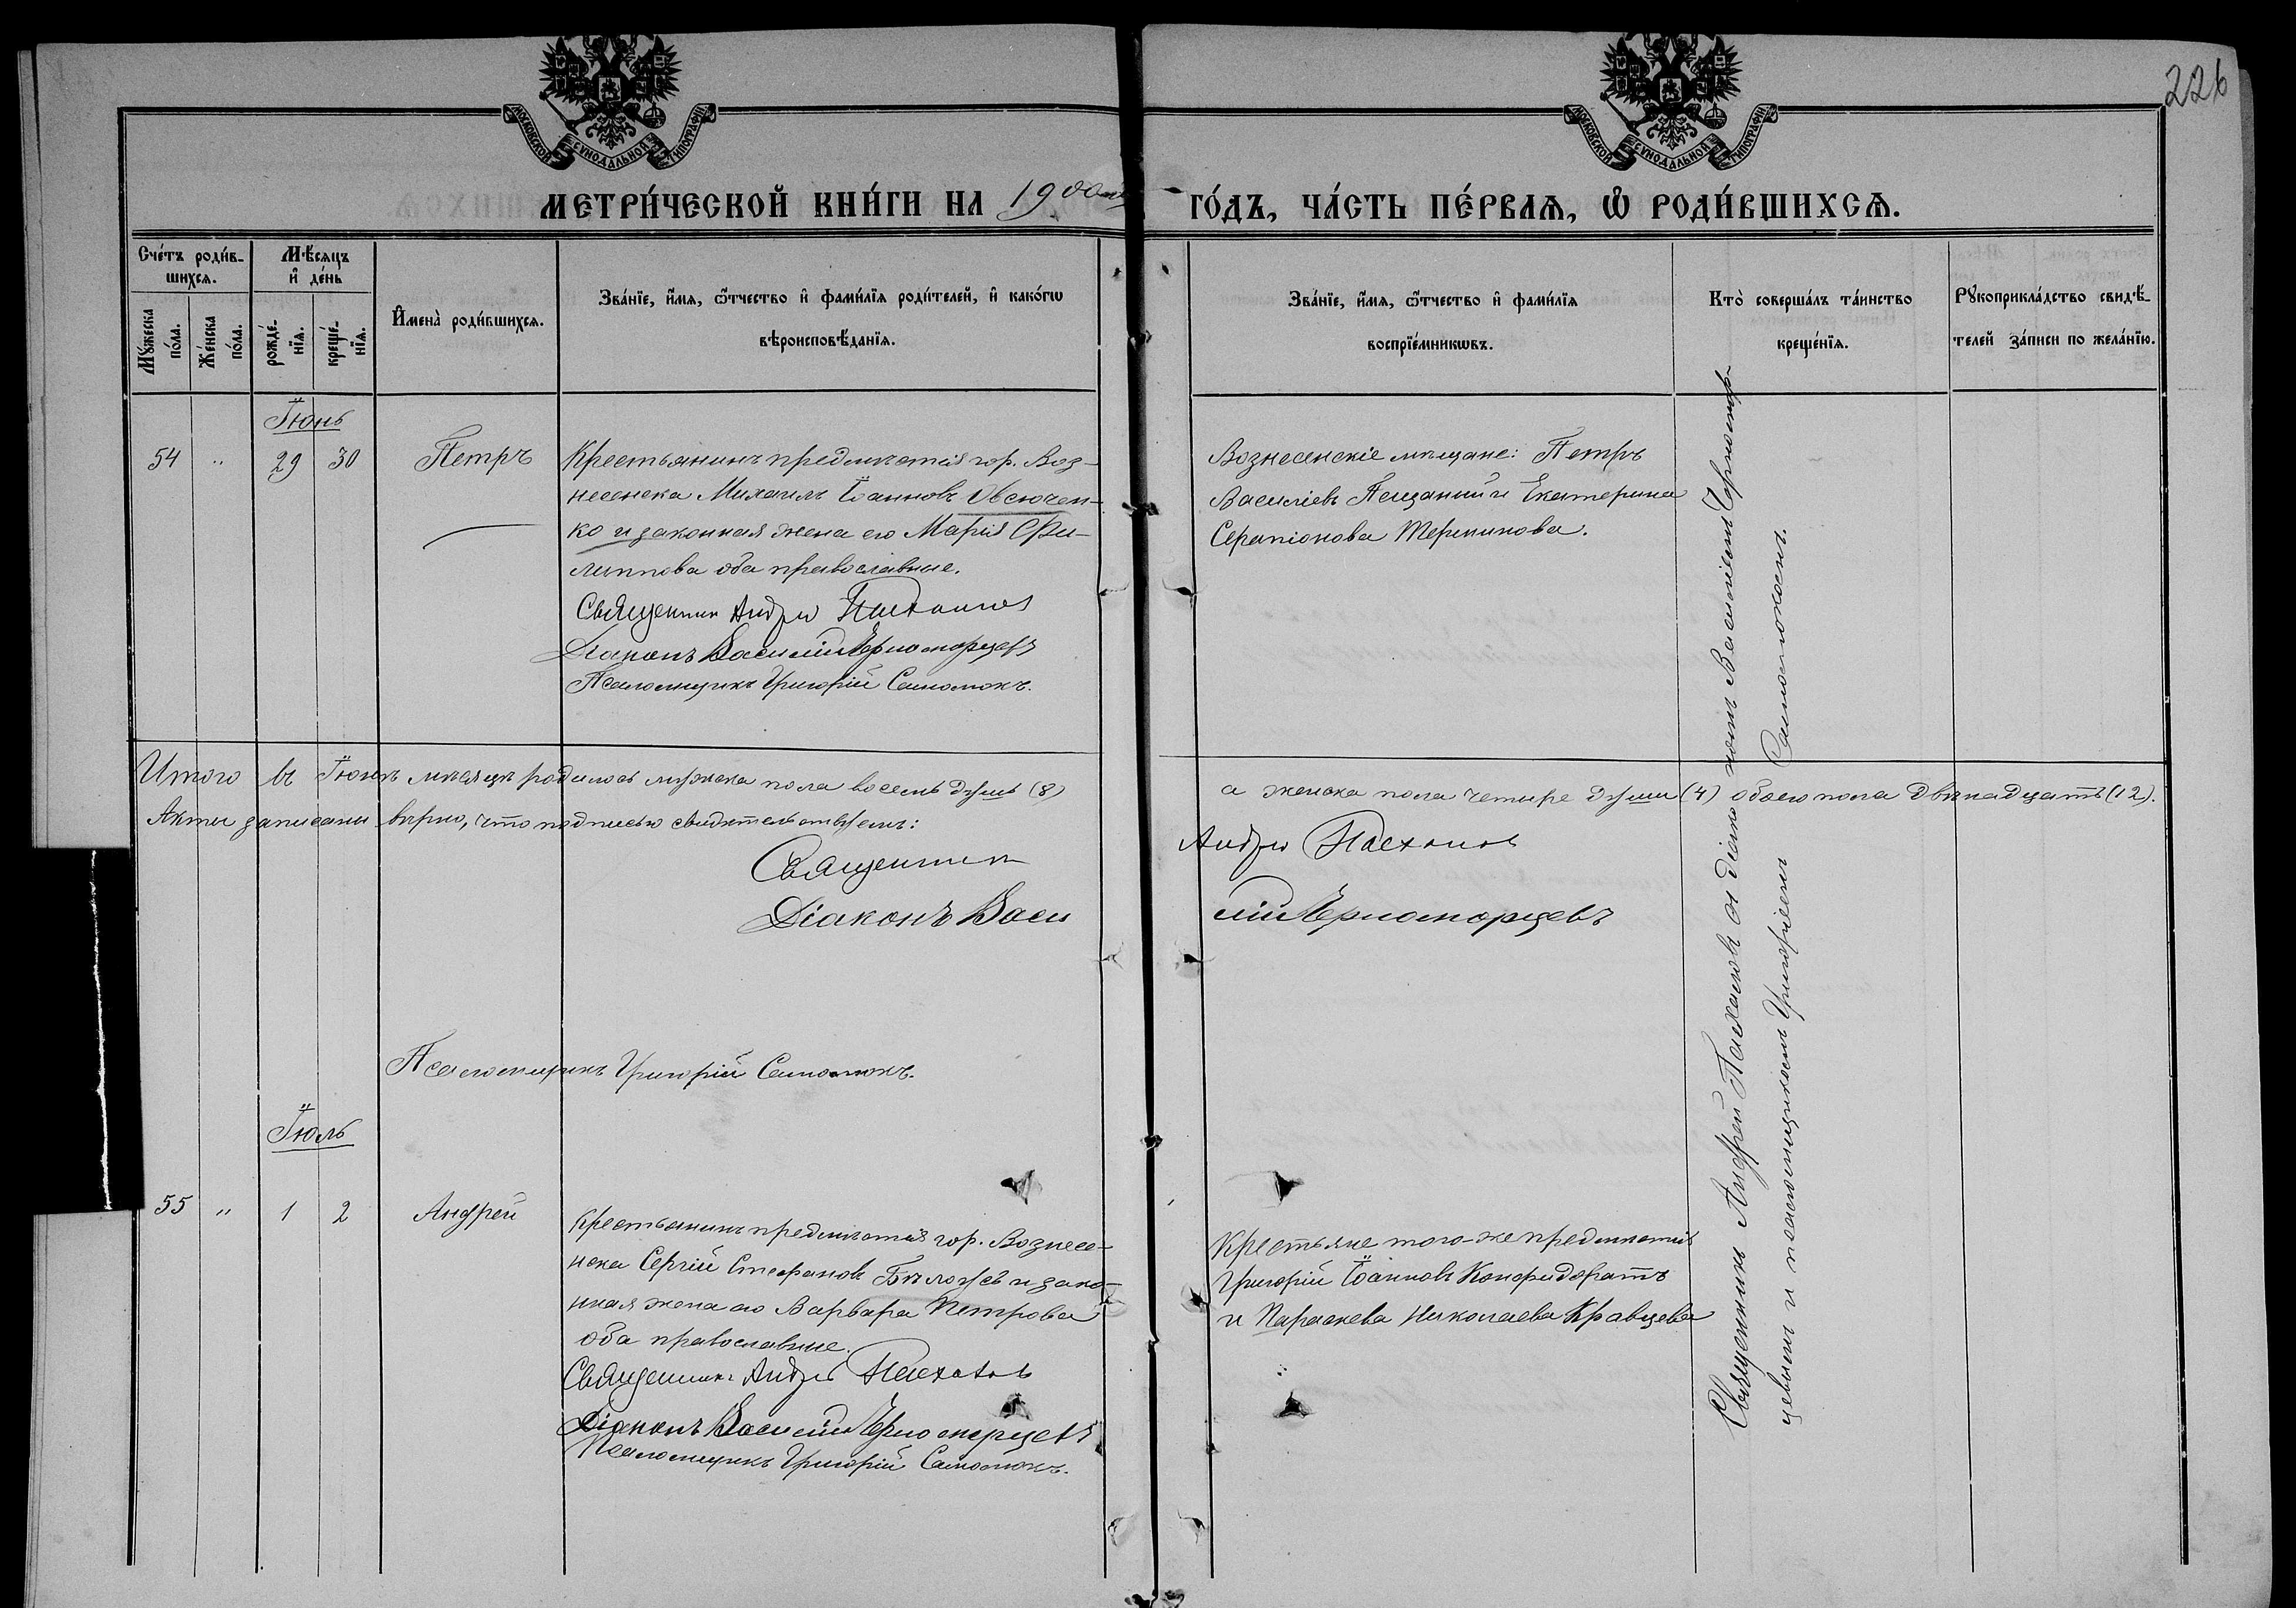 226
МОСКОВСКОЙ СѴНОДАЛЬНОЙ ТИПОГРАФІИ
МОСКОВСКОЙ СѴНОДАЛЬНОЙ ТИПОГРАФІИ
МЕТРИ́ЧЕСКОЙ КНИ́ГИ НА 1900 ГО́ДЪ, ЧА́СТЬ ПЕ́РВАѦ, Ѡ РОДИ́ВШИХСѦ.
Сче́тъ роди́в-
шихсѧ.
Мꙋ́жеска по́ла.
Же́нска по́ла.
Мѣ́сѧцъ
и҆ де́нь
рожде́-
нїѧ.
креще́-
нїѧ.
И҆мена̀ роди́вшихсѧ.
Зва́нїе, и҆́мѧ, ѻ҆́тчество и҆ фами́лїѧ роди́телей, и҆ како́гѡ
вѣроисповѣ́данїѧ.
Зва́нїе, и҆́мѧ, ѻ҆́тчество и҆ фами́лїѧ
воспрїе́мникѡвъ.
Кто̀ соверша́лъ та́инство
креще́нїѧ.
Рꙋкоприкла́дство свидѣ́-
телей за́писи по жела́нїю.
Іюнь
54 " 29 30 Петръ
Крестьянинъ предмѣстія гор. Воз-
несенска Михаилъ Іоанновъ Овсючен-
ко и законная жена его Марія Фи-
липпова оба православные.
Священник Андрей Пасхалов
Діаконъ Василій Черноморцевъ
Псаломщикъ Григорій Самолюкъ.
Вознесенскіе мѣщане: Петръ
Василіевъ Песчаный и Екатерина
Серапіонова Терпинова.
Итого въ Іюнѣ мѣсяцѣ родилось мужска пола восемь душъ (8)
а женска пола четыре души (4) обоего пола двѣнадцать (12).
Акты записаны вѣрно, что подписью свидѣтельствуемъ:
Священник Андрей Пасхалов
Діаконъ Василій Черноморцевъ
Псаломщикъ Григорій Самолюкъ.
Іюль
55 " 1 2 Андрей
Крестьянинъ предмѣстія гор. Вознесе-
нска Сергій Стефановъ Бѣлоусъ и зако-
нная жена его Варвара Петрова
оба православные.
Священник Андрей Пасхалов
Діаконъ Василій Черноморцевъ
Псаломщикъ Григорій Самолюкъ.
Крестьяне того-же предмѣстія
Григорій Іоанновъ Конфидоратъ
и Параскева Николаева Кравцева
Священникъ Андрей Пасхаловъ съ діакономъ Василіемъ Черномор-
цевымъ и псаломщикомъ Григоріемъ Самолюкомъ.